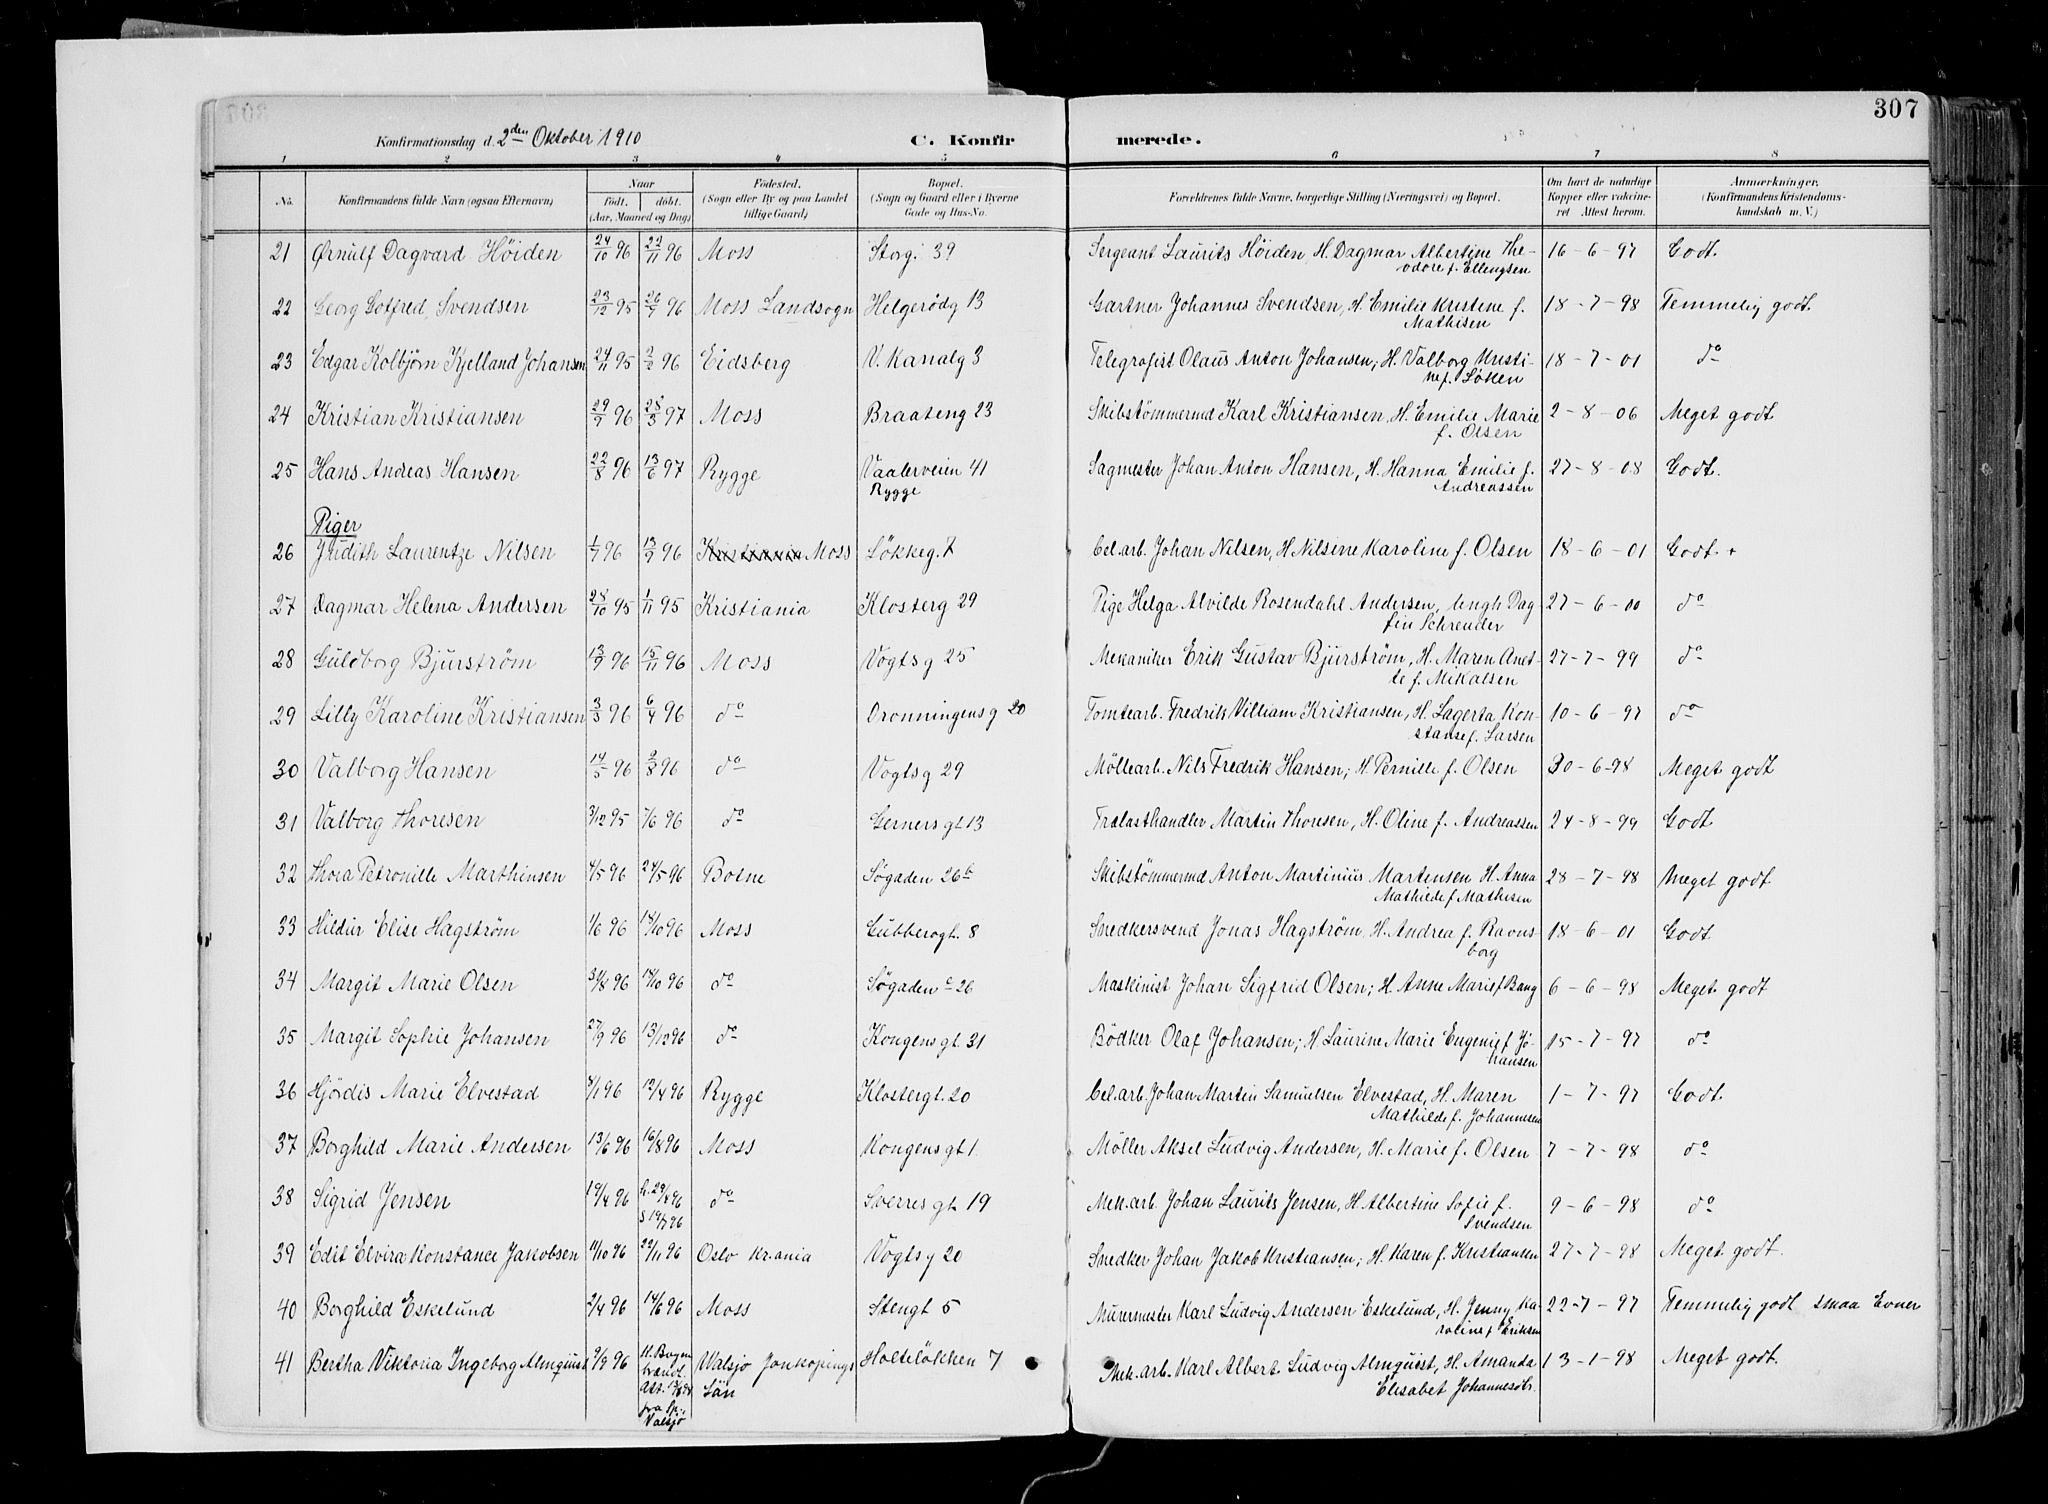 307
Konfirmationsdag d. 2den Oktober 1910 C. Konfirmerede.
1 2 3 4 5 6 7 8
No. Konfirmandens fulde Navn (ogsaa Efternavn) Naar født, døbt. (Aar, Maaned og Dag) Fødested. (Sogn eller By og paa Landet tillige Gaard) Bopæl. (Sogn og Gaard eller i Byerne Gade og Hus-No. Forældrenes fulde Navne, borgerlige Stilling (Næringsvei) og Bopæl. Om havt de naturlige Kopper eller vakcineret Attest herom. Anmærkninger. (Konfirmandens Kristendomskundskab m. V.)
21 Ørnulf Dagvard Höiden 24/10 96 22/11 96 Moss Storg. 39 Sergeant Laurits Höiden, H. Dagmar Albertine Theodore f. Ellengsen 16-6-97 Godt.
22 Georg Gotfred Svendsen 23/12 95 26/9 96 Moss Landsogn Helgerödg 13 Gartner Johannes Svendsen, H. Emilie Kristine f. Mathisen 18-7-98 Temmelig godt.
23 Edgar Kolbjörn Kjelland Johansen 24/11 95 2/2 96 Eidsberg V. Kanalg 3 Telegrafist Olaus Anton Johansen; H. Valborg Kristine f. Löken 18-7-01 do
24 Kristian Kristiansen 29/9 96 28/3 97 Moss Braateng 23 Skibstömmermd Karl Kristiansen, H. Emilie Marie f. Olsen 2-8-06 Meget godt
25 Hans Andreas Hansen 22/8 96 13/6 97 Rygge Vaalerveien 41 Rygge Sagmester Johan Anton Hansen, H. Hanna Emilie f. Andreassen 27-8-08 Godt.
Piger
26 Judith Laurentze Nilsen 1/7 96 13/9 96 Kristiania Moss Lökkeg. 7 Cel.arb. Johan Nilsen, H. Nilsine Karoline f. Olsen 18-6-01 Godt. +
27 Dagmar Helena Andersen 28/10 95 1/11 95 Kristiania Klosterg 29 Pige Helga Alvilde Rosendahl Andersen, Ungk Dagfin Schreuder 27-6-00 do
28 Guldborg Bjurström 13/9 96 15/11 96 Moss Vogtsg 25 Mekaniker Erik Gustav Bjurström, H. Maren Anette f. Mikalsen 27-7-99 do
29 Lilly Karoline Kristiansen 3/3 96 6/4 96 do Dronningensg 20 Tomtearb. Fredrik Villiam Kristiansen, H. Lagerta Konstanse f. Larsen 10-6-97 do
30 Valborg Hansen 14/5 96 2/8 96 do Vogtsg 29 Möllearb. Nils Fredrik Hansen; H. Pernille f. Olsen 30-6-98 Meget godt
31 Valborg Thoresen 3/12 95 7/6 96 do Gerners gt 13 Trælasthandler Martin Thoresen, H. Oline f. Andreassen 24-8-99 Godt
32 Thora Petronille Marthinsen 4/5 96 24/5 96 Botne Søgaden 26b Skibstömmermd Anton Martinius Martensen H. Anna Mathilde f Mathisen 28-7-98 Meget godt.
33 Hildur Elise Hagström 1/6 96 18/10 96 Moss Gubberogt. 8 Snedkersvend Jonas Hagström, H. Andrea f. Ravnsborg 18-6-01 Godt.
34 Margit Marie Olsen 31/8 96 18/10 96 do Søgaden c 26 Maskinist Johan Sigfrid Olsen; H. Anne Marie f Bang 6-6-98 Meget godt
35 Margit Sophie Johansen 27/9 96 13/12 96 do Kongens gt. 31 Bödker Olaf Johansen; H. Laurine Marie Eugenie f Johansen 15-7-97 do
36 Hjördis Marie Elvestad 8/1 96 12/4 96 Rygge Klostergt. 20 Cel.arb. Johan Martin Samuelsen Elvestad, H. Maren Mathilde f. Johannesen 1-7-97 Godt.
37 Borghild Marie Andersen 13/6 96 16/8 96 Moss Kongens gt 1. Möller Aksel Ludvig Andersen, H. Marie f. Olsen 7-7-98 do
38 Sigrid Jensen 19/4 96 h. 29/4 96 S 19/7 96 do Sverres gt 19 Mek.arb. Johan Laurits Jensen, H. Albertine Sofie f. Svendsen 9-6-98 do
39 Edit Elvira Konstance Jakobsen 11/10 96 22/11 96 Oslo Kr.ania Vogtsg 20 Snedker Johan Jakob Kristiansen; H. Karen f. Kristiansen 27-7-98 Meget godt.
40 Borghild Eskelund 2/4 96 14/6 96 Moss Stengt 5 Murermester Karl Ludvig Andersen Eskelund, H. Jenny Karoline f Eriksen 22-7-97 Temmelig godt smaa Evner
41 Bertha Viktoria Ingeborg Almquist 9/9 96 Att. fra Sp. Valsjö Walsjö Jonkopings Län Holteløkken 7 Mek.arb. Karl Albert Ludvig Almquist, H. Amanda Elisabet Johannesdr. 13-1-98 Meget godt.